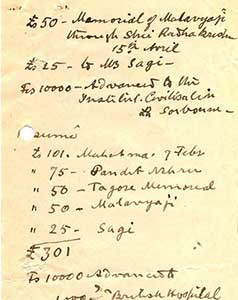 £50 - Memorial of Malavyaji
through Shri Radhakrishn
15th Avril
£25 - to MB Sagi -
Frs 10000 - Advanced to the
Institut. Civilisation
La Sorbonne -
sumé
£ 101. Mahatma. 7 Febr
" 75 - Pandit Nehru
" 50 - Tagore Memorial
" 50 - Malavyaji
" 25 - Sagi
£ 301
Frs 10000 Advanced to
British Hospital